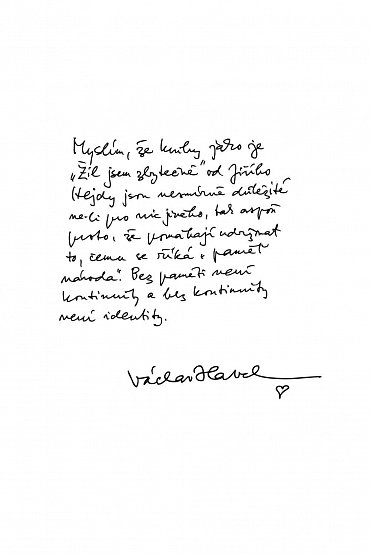 Myslím, že knihy jako je
„Žil jsem zbytečně" od Jiřího
Hejdy jsou nesmírně důležité
ne-li pro nic jiného, tak aspoň
proto, že pomáhají udržovat
to, čemu se říká „paměť
národa“. Bez paměti není
kontinuity a bez kontinuity
není identity.
Václav Havel